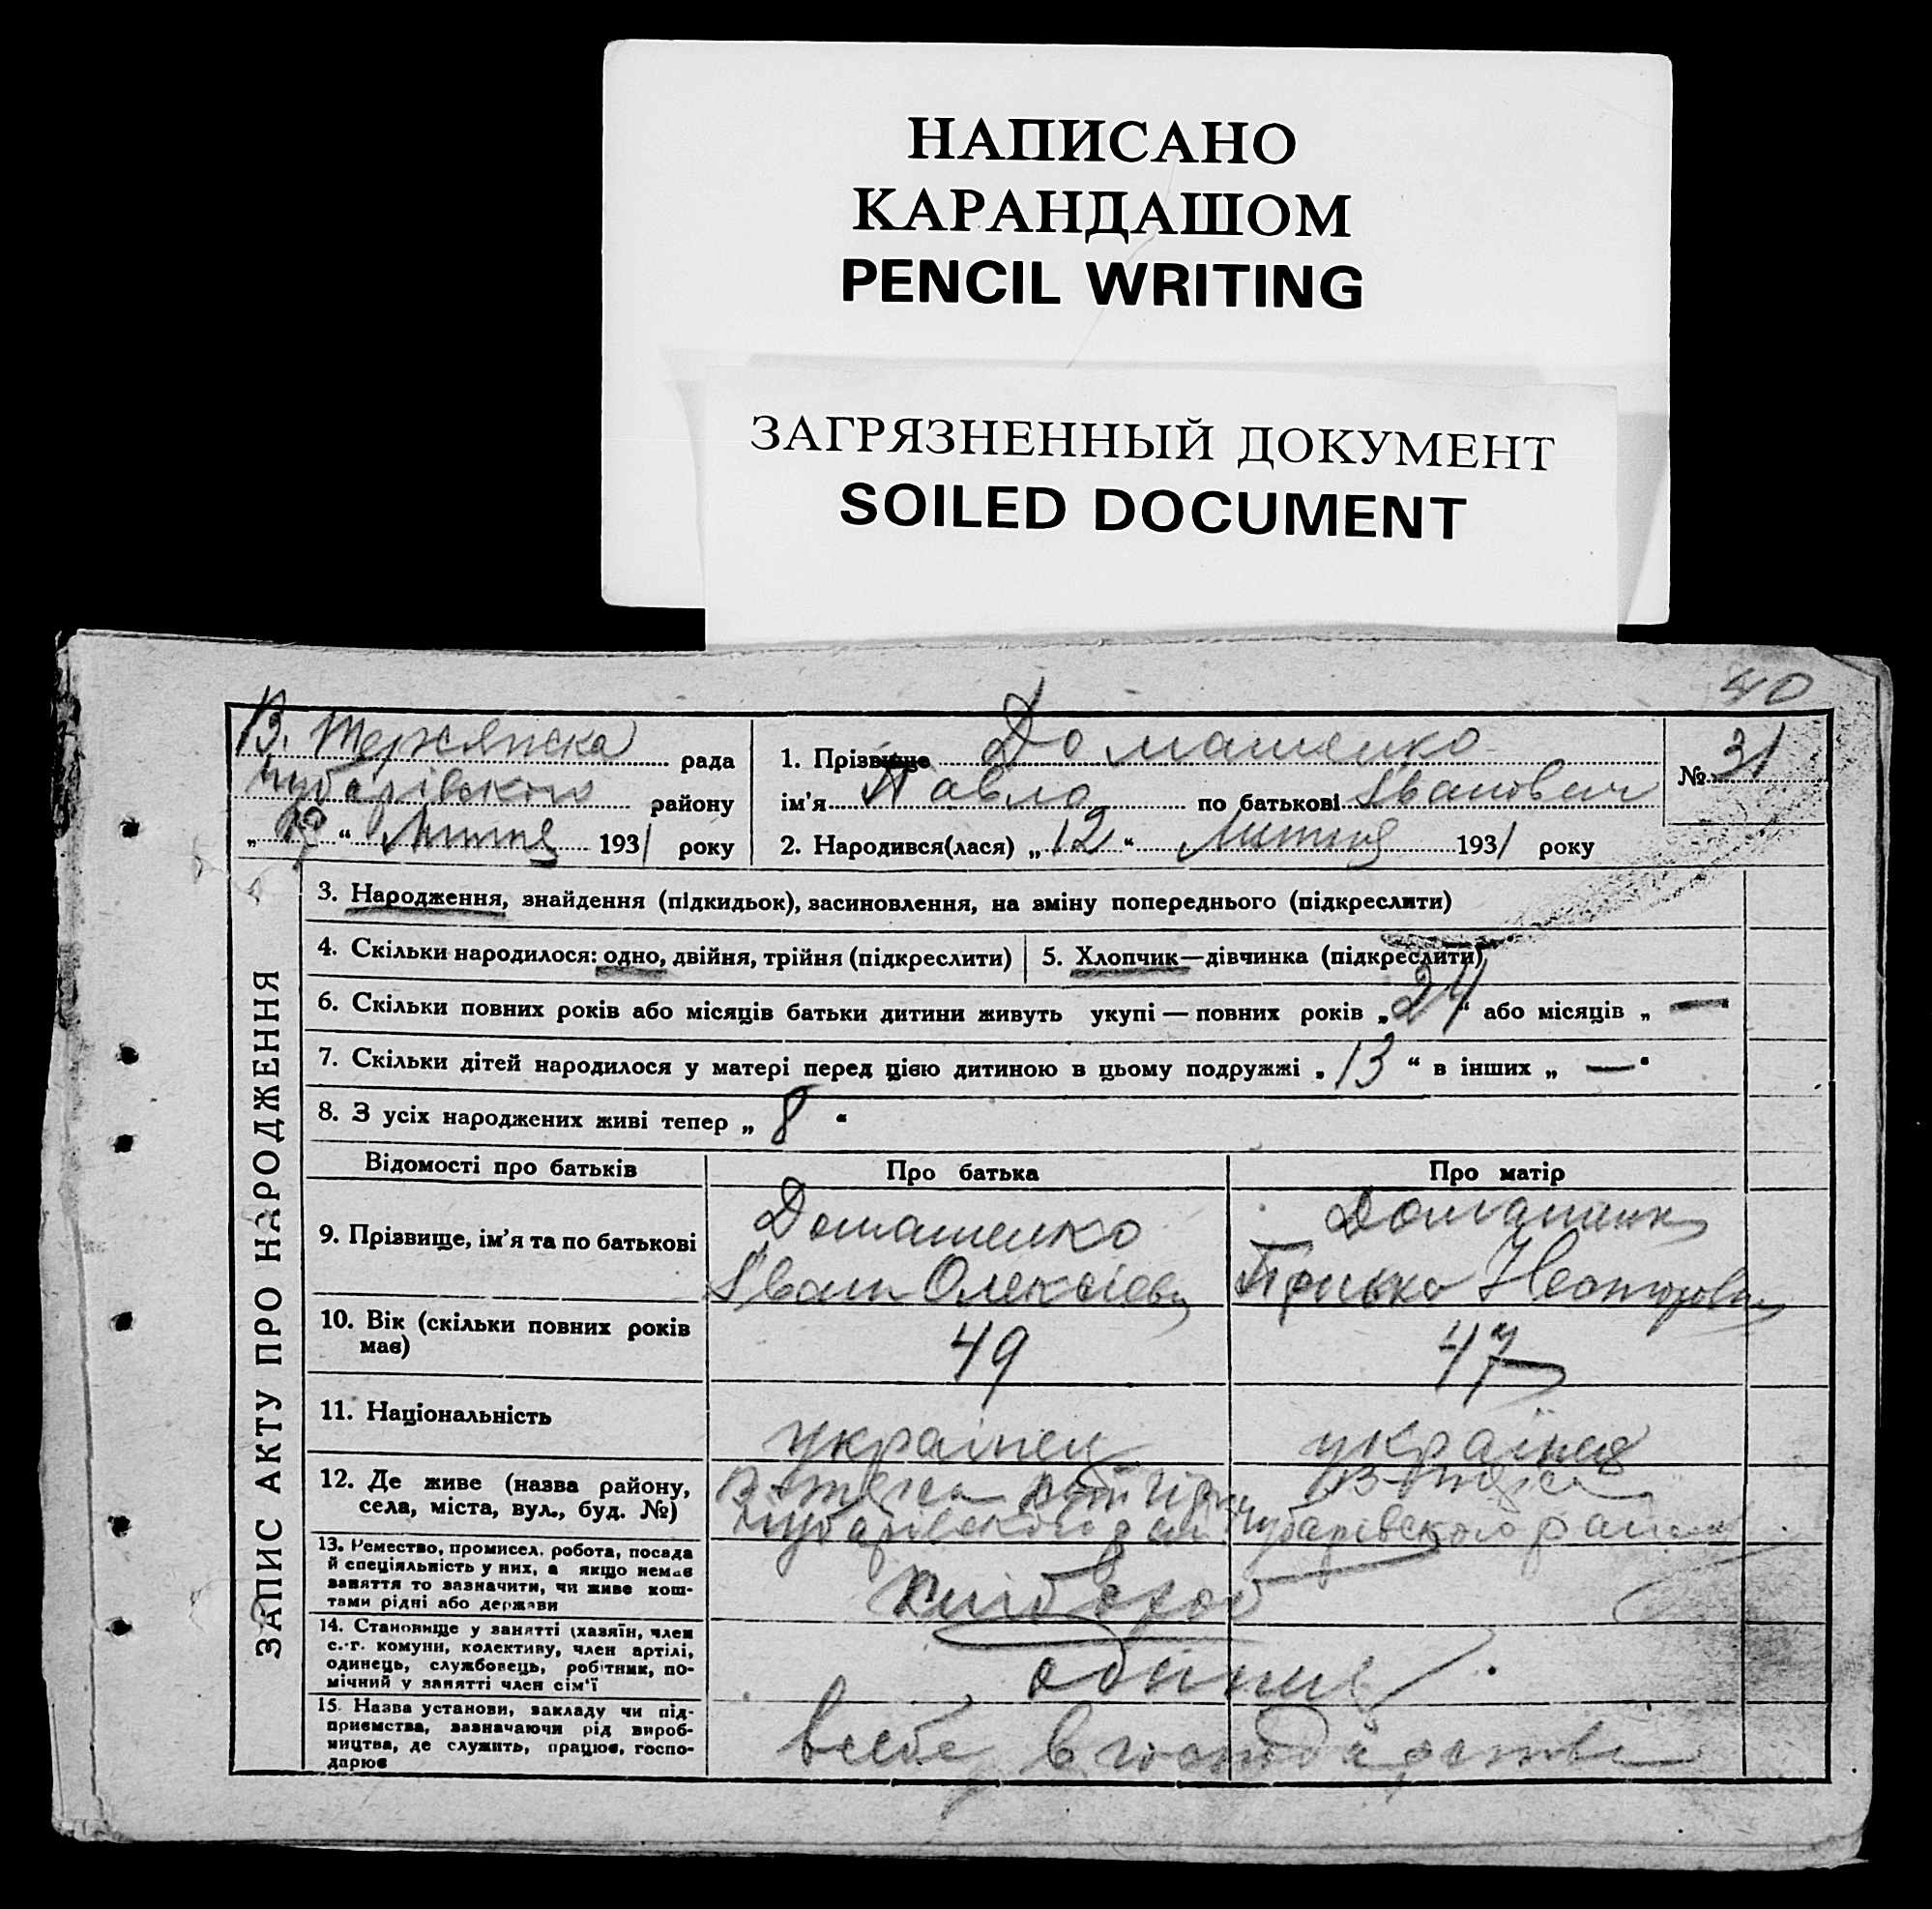 НАПИСАНО
КАРАНДАШОМ
PENCIL WRITING
ЗАГРЯЗНЕННЫЙ ДОКУМЕНТ
SOILED DOCUMENT
40
ЗАПИС АКТУ ПРО НАРОДЖЕННЯ
В. Терсянска рада
Чубарівского району
" " Лютця 1931 року
1. Прізвище Домашенко
ім'я Павло по батькові Іванович
№ 31
2. Народився(лася) „12“ Лютця 1931 року
3. Народження, знайдення (підкидьок), засиновлення, на зміну попереднього (підкреслити)
4. Скільки народилося: одно, двійня, трійня (підкреслити)
5. Хлопчик—дівчинка (підкреслити)
6. Скільки повних років або місяців батьки дитини живуть укупі — повних років „24“ або місяців „—“
7. Скільки дітей народилося у матері перед цією дитиною в цьому подружжі „13“ в інших „—“
8. З усіх народжених живі тепер „8“
Відомості про батьків Про батька Про матір
9. Прізвище, ім'я та по батькові
Домашенко
Іван Олексієв
Домашенк
10. Вік (скільки повних років має)
49
47
11. Національність
українец
українка
12. Де живе (назва району, села, міста, вул., буд. №)
Чубарівского
Чубарівского району
13. Ремество, промисел. робота, посада
й спеціяльність у них, а якщо немає
заняття то зазначити, чи живе кош-
тами рідні або держави
хлібороб
14. Становище у занятті (хазяїн, член
с.-г. комуни, колективу, член артілі,
одинець, службовець, робітник, по-
мічний у занятті член сім'ї
одинец
15. Назва установи, закладу чи під-
приємства, зазначаючи рід вироб-
ництва, де служить, працює, госпо-
дарює
всебе в господарстві